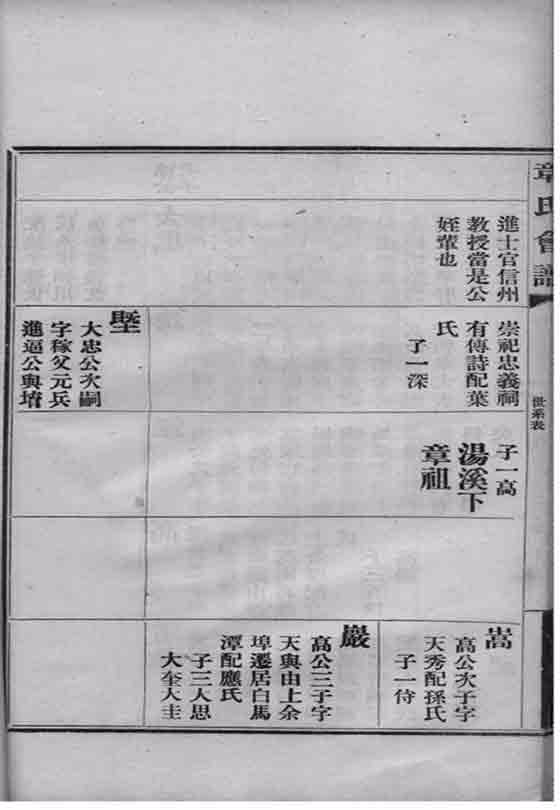 章氏會譜
世系表
進士官信州
教授當是公
姪輩也
崇祀忠義祠
有傳詩配葉
氏
子一深
壂
大忠公次嗣
字稼父元兵
進逼公與堉
子一高
湯溪下
章祖
嵩
高公次子字
天秀配孫氏
子一待
巖
高公三子字
天與由上余
埠遷居白馬
潭配應氏
子三人思
大奎人圭